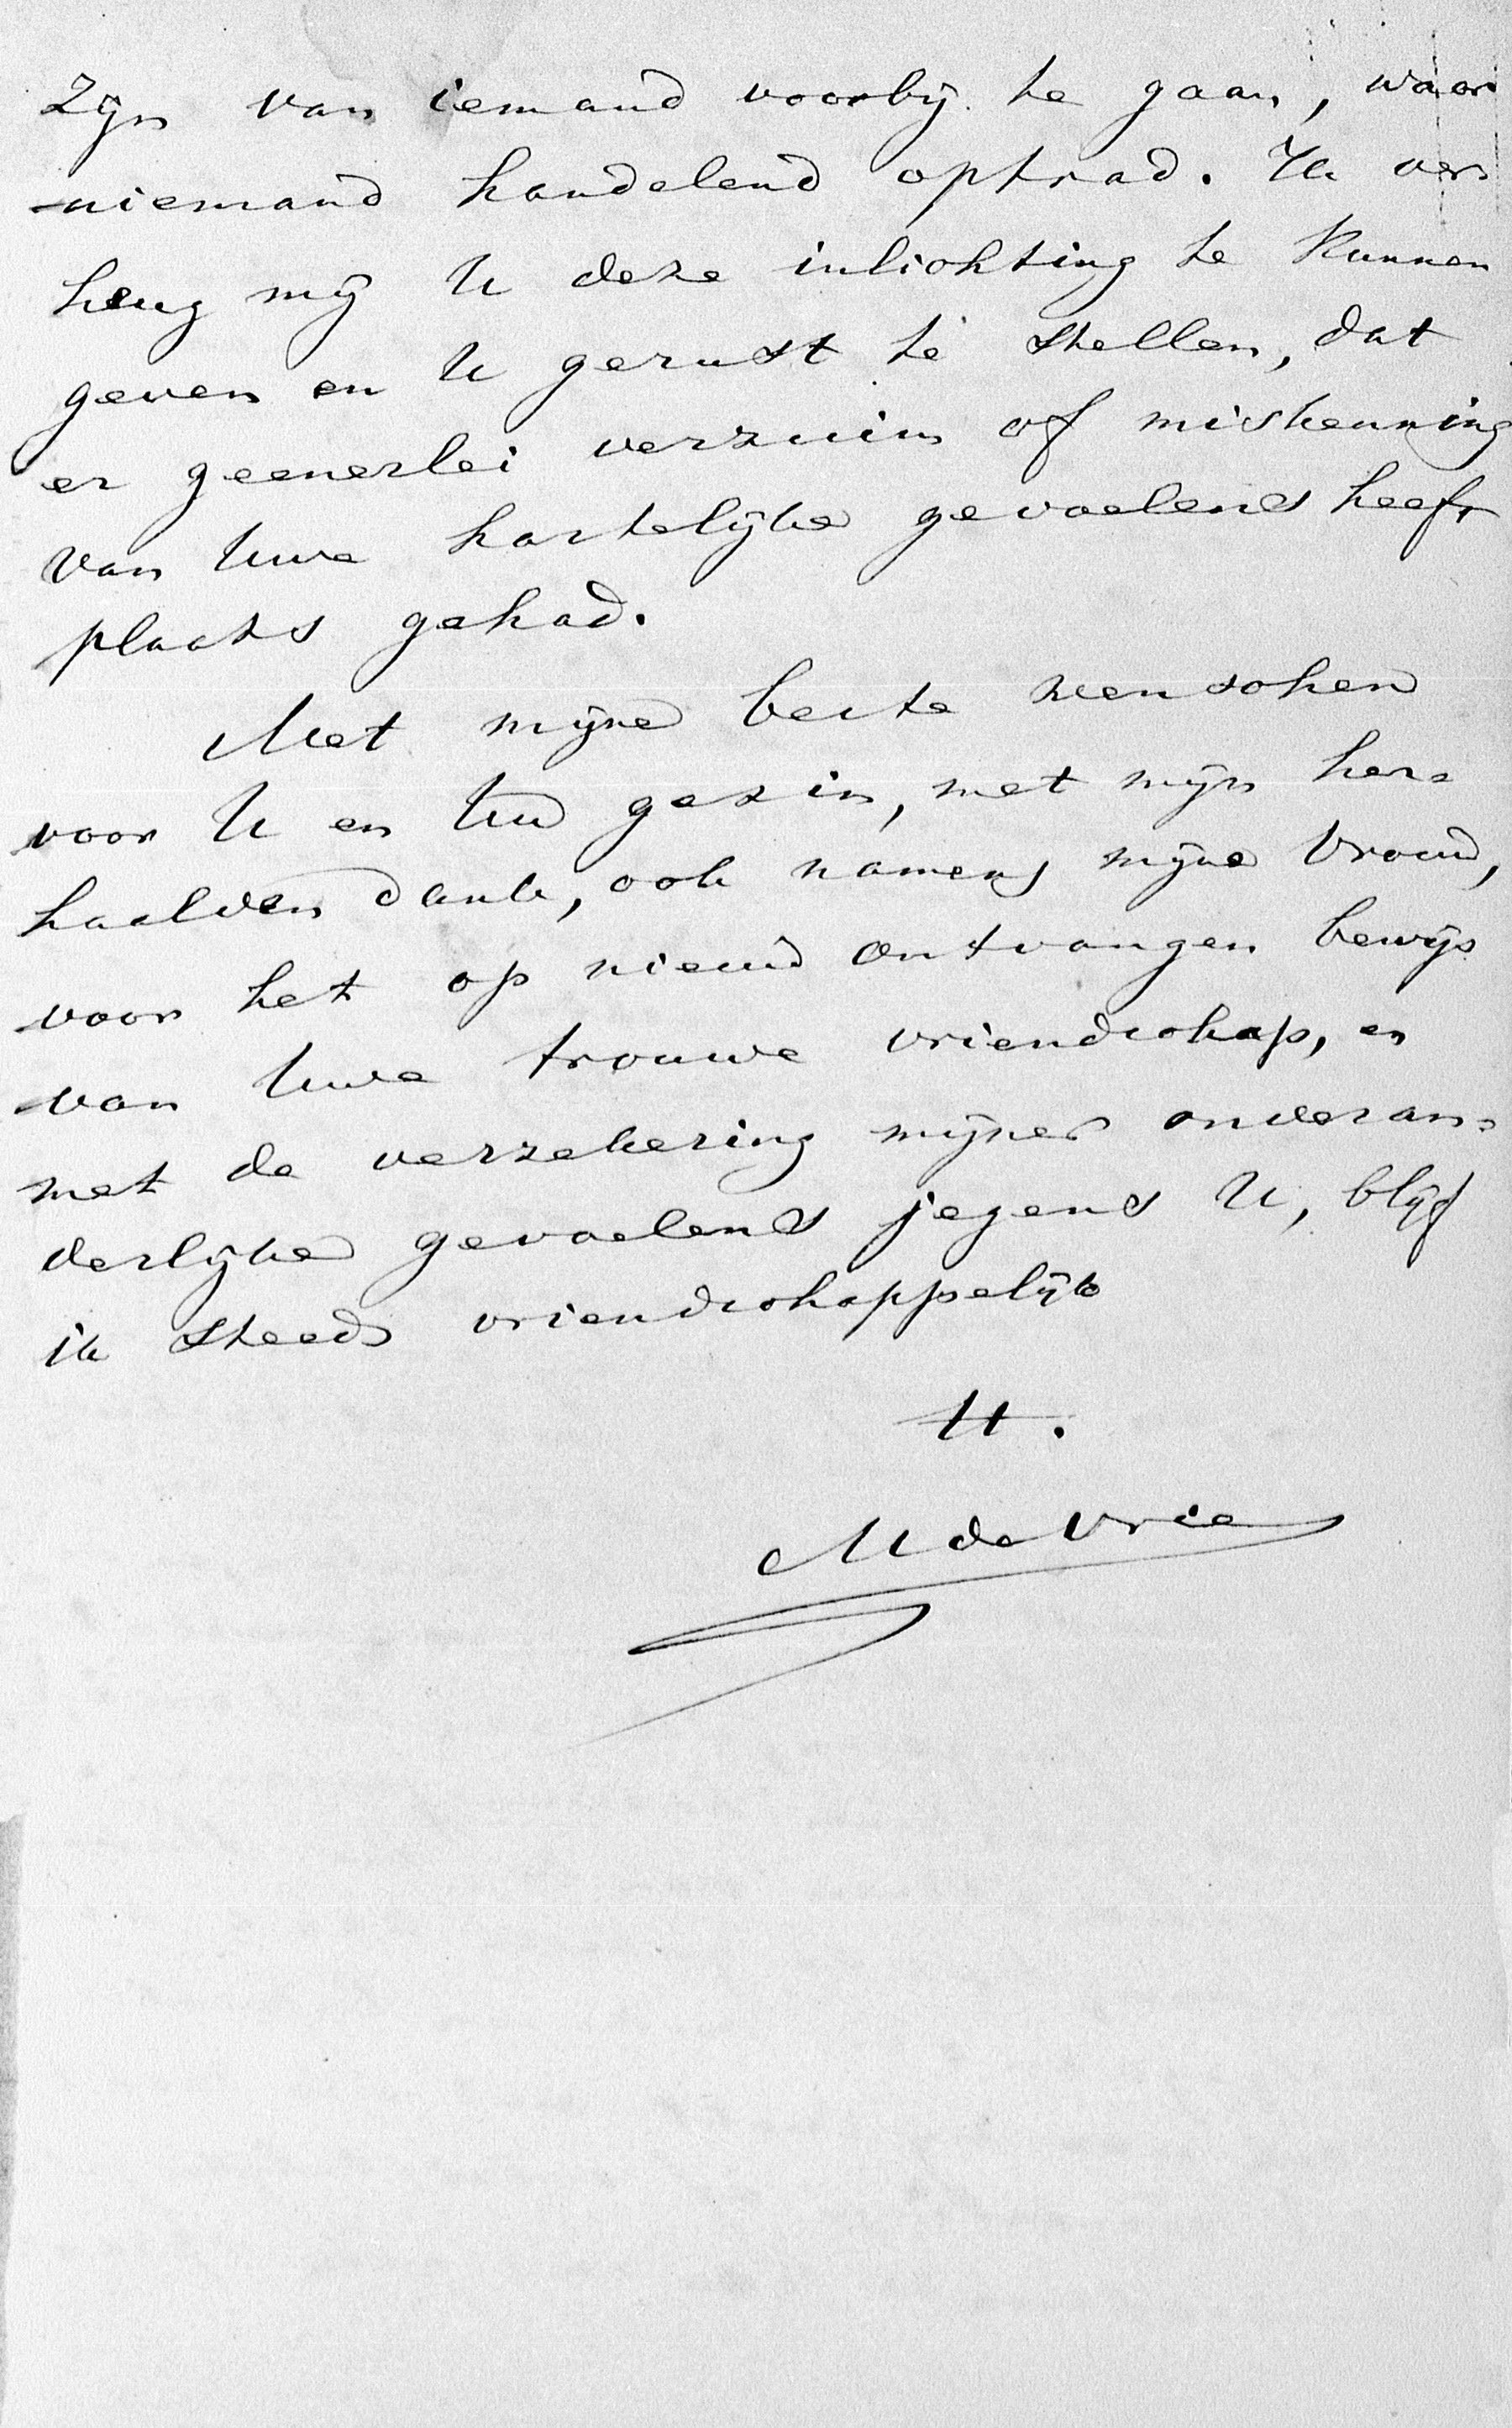 zijn van iemand voorbij te gaan, waar
niemand handelend optrad. Ik ver
heug mij U deze inlichting te kunnen
geven en U gerust te stellen, dat
er geenerlei verzuim of miskenning
van Uwe hartelijke gevoelens heeft
plaats gehad.
Met mijne beste wenschen
voor U en Uw gezin, met mijn her=
haalden dank, ook namens mijne vrouw,
voor het op nieuw ontvangen bewijs
van Uwe trouwe vriendschap, en
met de verzekering mijner onveran=
derlijke gevoelens jegens U, blijf
ik steeds vriendschappelijk
tt.
M de Vries